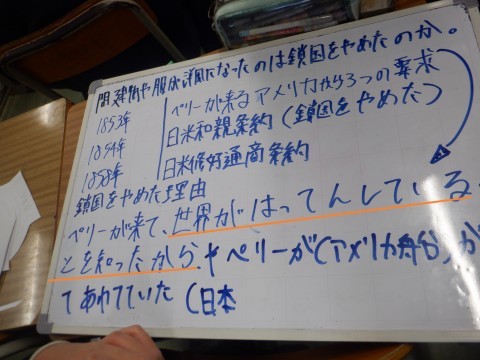 問 建物や服が洋風になったのは鎖国をやめたのか。
1853年 ペリーが来る アメリカから3つの要求
1854年 日米和親条約(鎖国をやめた)
1858年 日米修好通商条約
鎖国をやめた理由
ペリーが来て、世界がはってんしている
とを知ったから、やペリーが(アメリカ船)が
てあれていた(日本